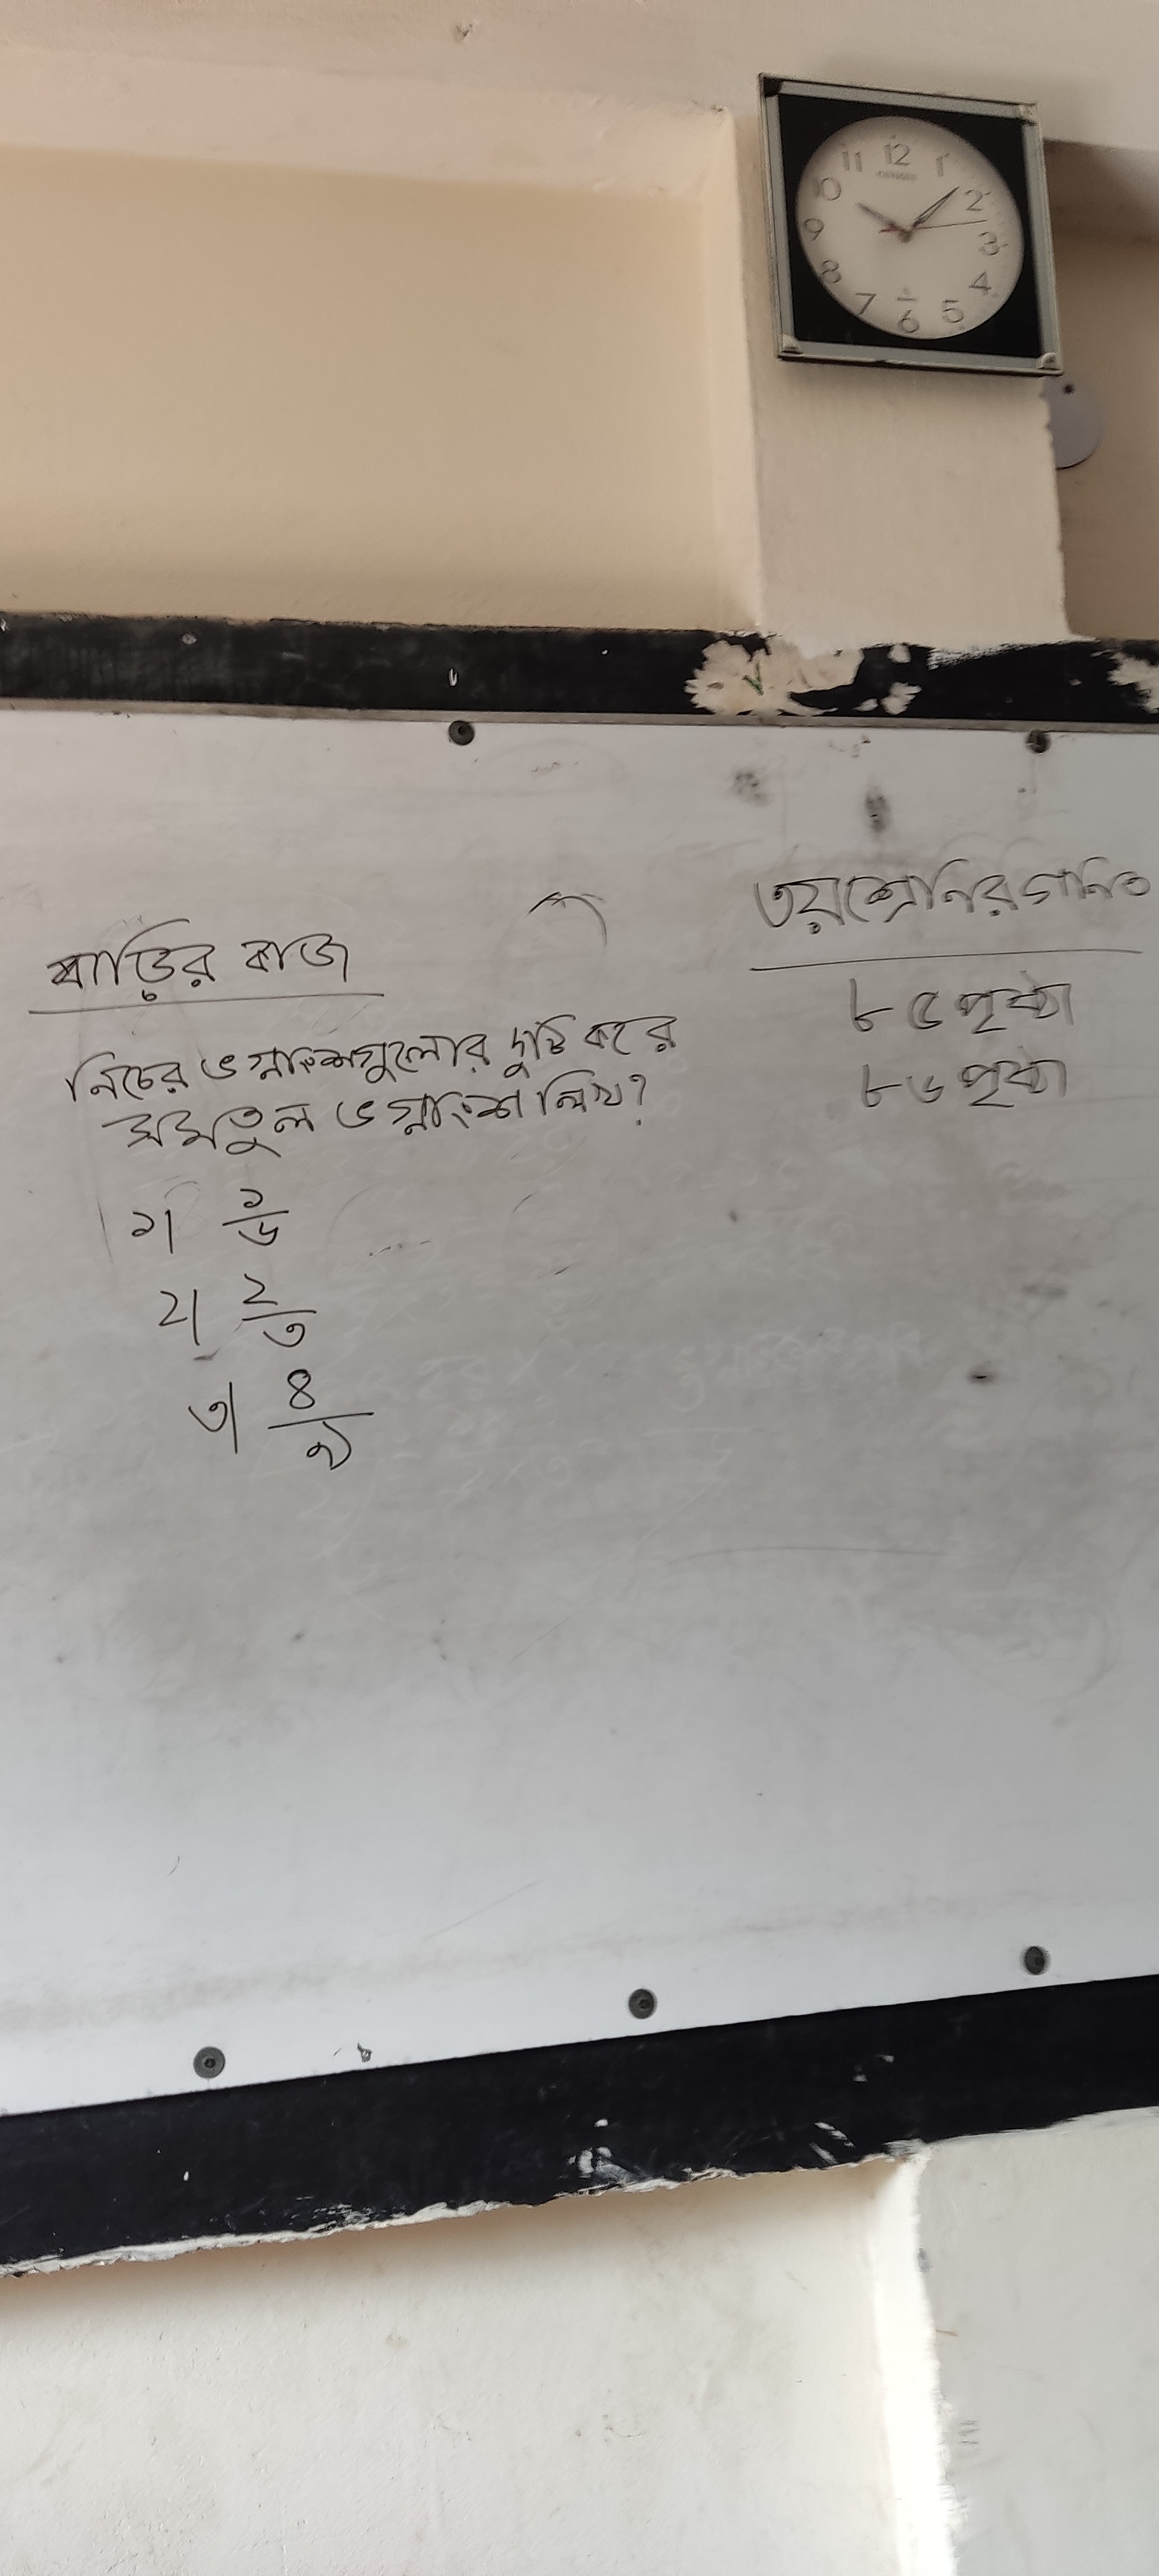 12
1
2
3
4
5
6
7
8
9
10
11
বাড়ির কাজ
নিচের ভগ্নাংশগুলোর দুটি করে
সমতুল ভগ্নাংশ লিখ?
১। ১/৬
২। ২/৩
৩। ৪/৯
৩য় শ্রেনির গনিত
৮৫ পৃষ্ঠা
৮৬ পৃষ্ঠা